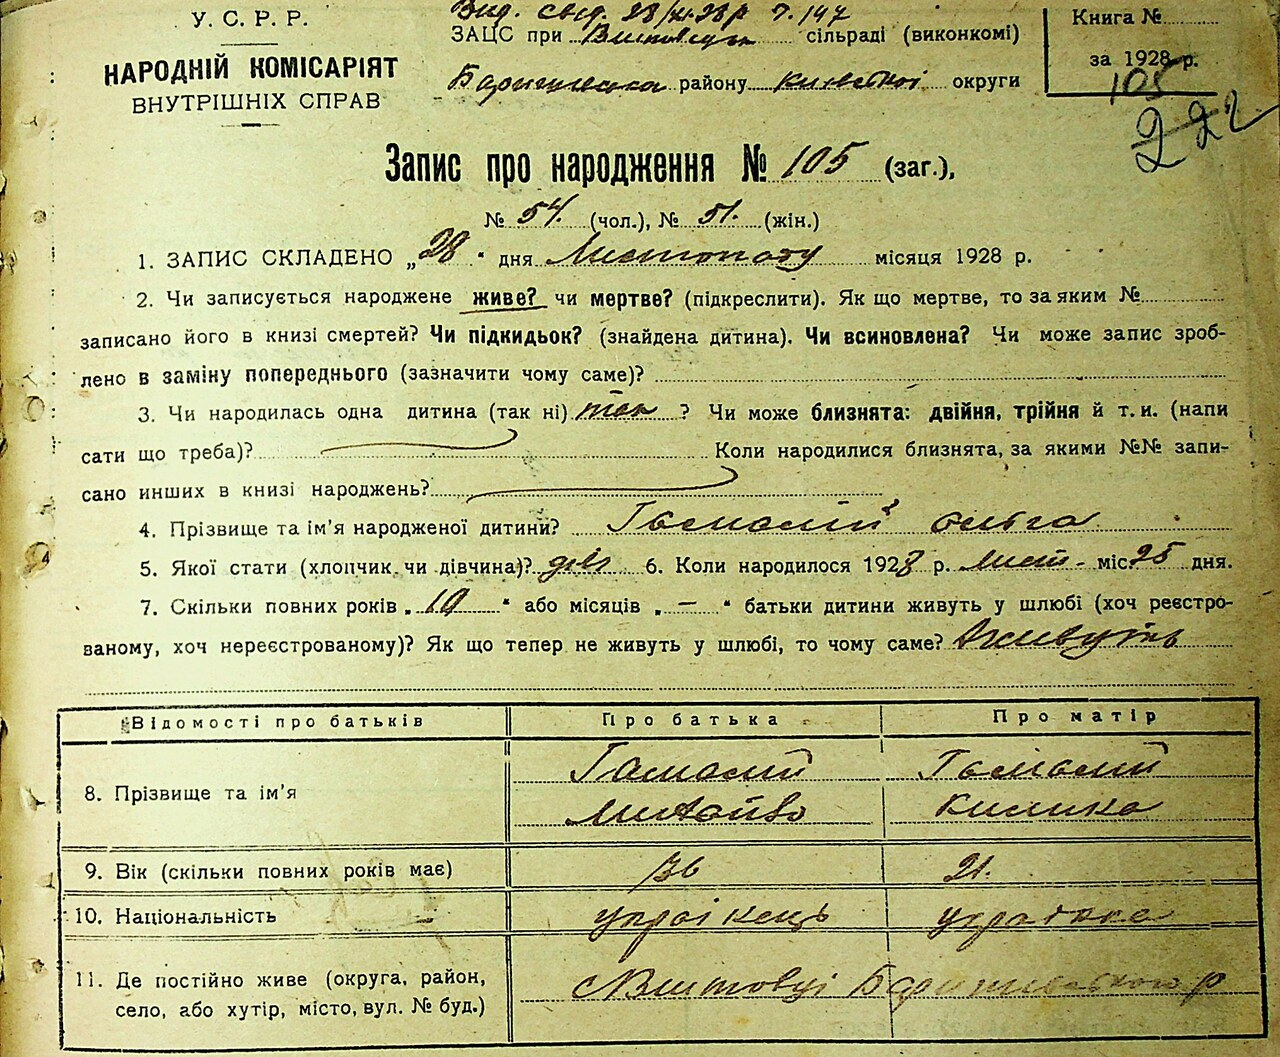 Вид. свід. 28/XI-28р Ч. 147
У. С. Р. Р.
НАРОДНІЙ КОМІСАРІЯТ
ВНУТРІШНІХ СПРАВ
ЗАЦС при сільраді (виконкомі)
району Київської округи
Книга №
за 1928 р.
105
222
Запис про народження № 105 (заг.),
№ 54. (чол.), № 51. (жін.)
1. ЗАПИС СКЛАДЕНО „28" дня Листопаду місяця 1928 р.
2. Чи записується народжене живе? чи мертве? (підкреслити). Як що мертве, то за яким №
записано його в книзі смертей? Чи підкидьок? (знайдена дитина). Чи всиновлена? Чи може запис зроб-
лено в заміну попереднього (зазначити чому саме)?
3. Чи народилась одна дитина (так ні) так ? Чи може близнята: двійня, трійня й т. и. (напи
сати що треба)? Коли народилися близнята, за якими №№ запи-
сано инших в книзі народжень?
4. Прізвище та ім'я народженої дитини? Гамалій Ольга
5. Якої стати (хлопчик чи дівчина)? дів 6. Коли народилося 1928 р. лист. міс 25 дня.
7. Скільки повних років „ 10 " або місяців „ – " батьки дитини живуть у шлюбі (хоч реєстро-
ваному, хоч нереєстрованому)? Як що тепер не живуть у шлюбі, то чому саме? живуть
Відомості про батьків Про батька Про матір
8. Прізвище та ім'я Гамалій Гамалій
Михайло Килина
9. Вік (скільки повних років має) 36 21.
10. Національність україкець украінка
11. Де постійно живе (округа, район,
село, або хутір, місто, вул. № буд.) Баришевського р